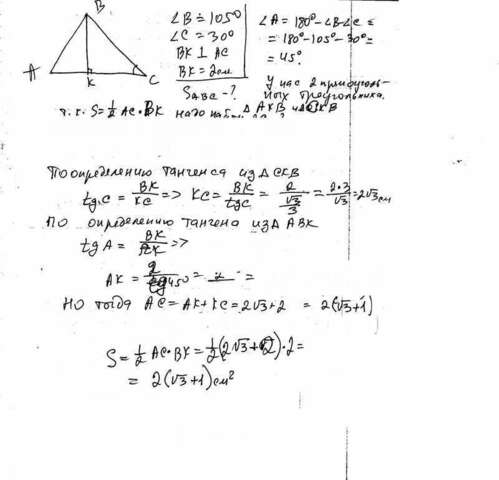 B
A
K
C
∠B = 105°
∠C = 30°
BK ⊥ AC
BK = 2см
S ABC - ?
∠A = 180° - ∠B - ∠C =
= 180° - 105° - 30° =
= 45°.
У нас 2 прямоуголь-
ных треугольника.
т.к. S = 1/2 AC · BK надо △AKB
По определению тангенса из △ CKB
tg C = BK/KC => KC = BK/tgC = 2/(√3/3) = 2·3/√3 = 2√3 см
По определению тангена из △ ABK
tg A = BK/AK =>
AK = 2/tg45° = =
Но тогда AC = AK + KC = 2√3 + 2 = 2(√3+1)
S = 1/2 AC · BK = 1/2 (2√3 + 2) · 2 =
= 2(√3+1) см²